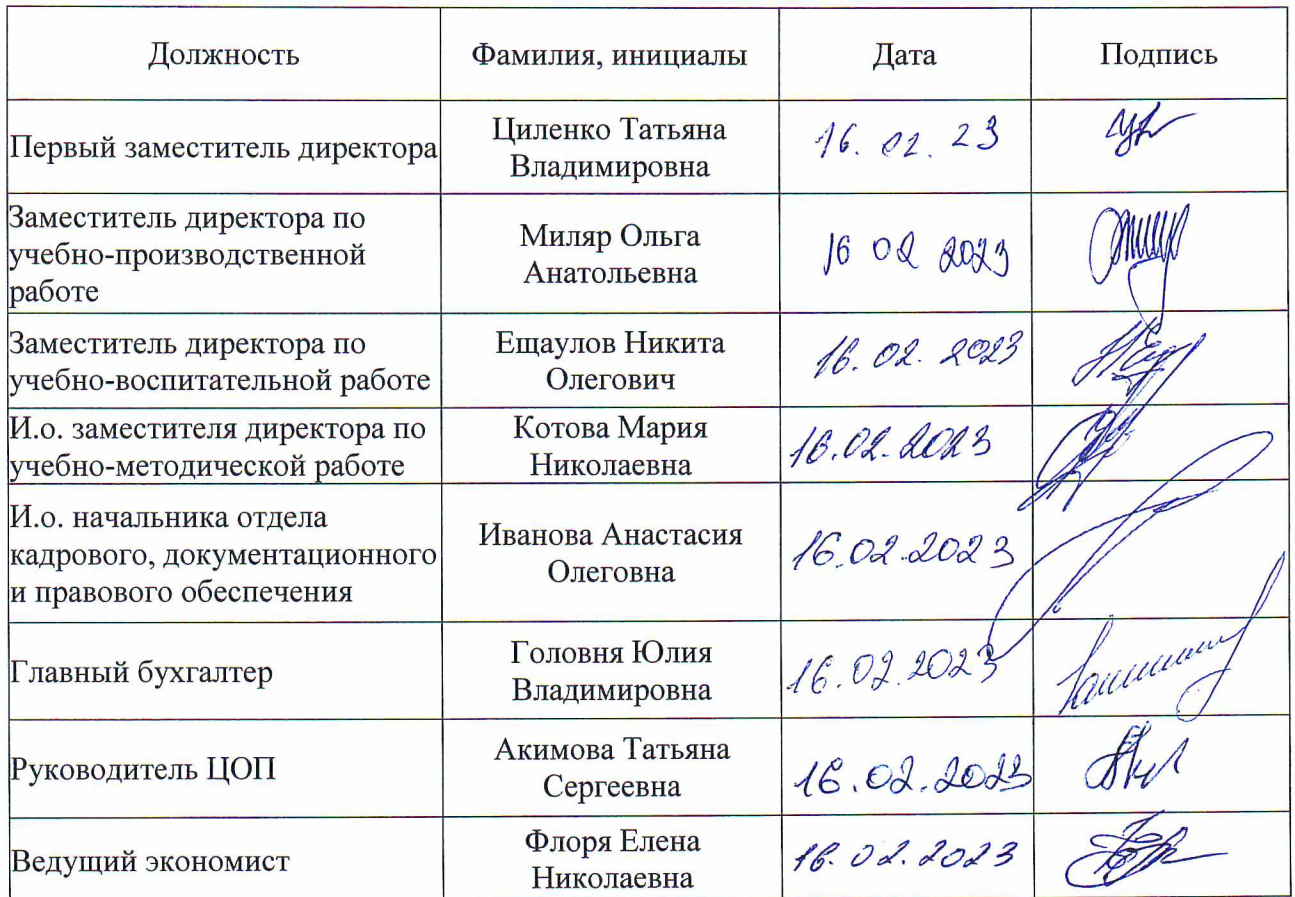 Должность Фамилия, инициалы Дата Подпись
Первый заместитель директора
Циленко Татьяна
Владимировна
16. 02. 23
Заместитель директора по
учебно-производственной
работе
Миляр Ольга
Анатольевна
16 02 2023
Заместитель директора по
учебно-воспитательной работе
Ещаулов Никита
Олегович
16.02.2023
И.о. заместителя директора по
учебно-методической работе
Котова Мария
Николаевна
16.02.2023
И.о. начальника отдела
кадрового, документационного
и правового обеспечения
Иванова Анастасия
Олеговна
16.02.2023
Главный бухгалтер
Головня Юлия
Владимировна
16.02.2023
Руководитель ЦОП
Акимова Татьяна
Сергеевна
16.02.2023
Ведущий экономист
Флоря Елена
Николаевна
16.02.2023